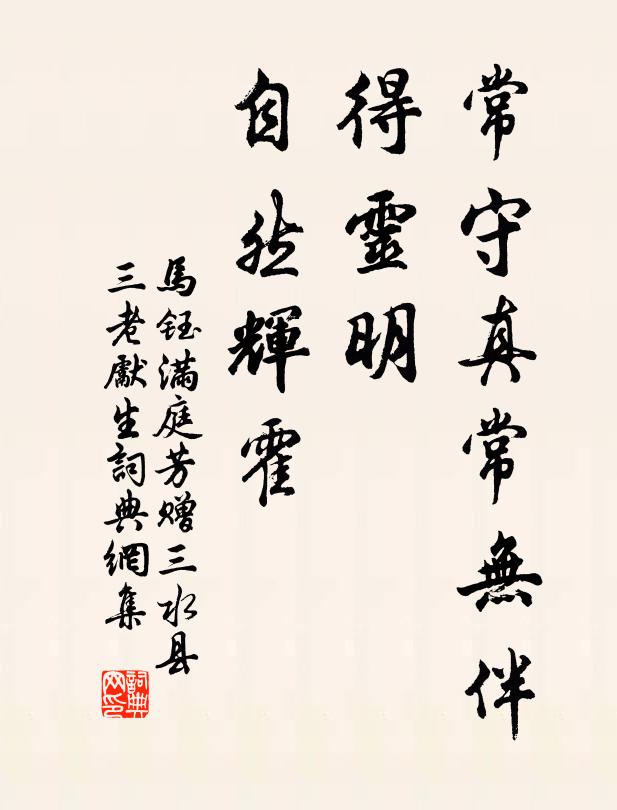 常守真常無伴
得靈明
自然輝霍
馬鈺滿庭芳赠三水县
三老獻生詞典網集
詞典网印